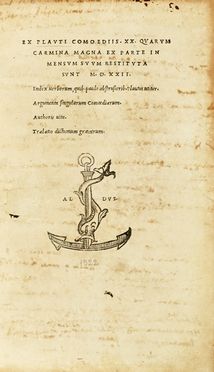 EX PLAVTI COMOEDIIS. XX. QVARVM
CARMINA MAGNA EX PARTE IN
MENSVM SVVM RESTITVTA
SVNT M. D. XXII.
Index uerborum, quibus paulo abstrusioribus Plautus utitur.
Argumenta singularum Comoediarum.
Authoris uita.
Tralatio dictionum graecarum.
AL DVS
1522